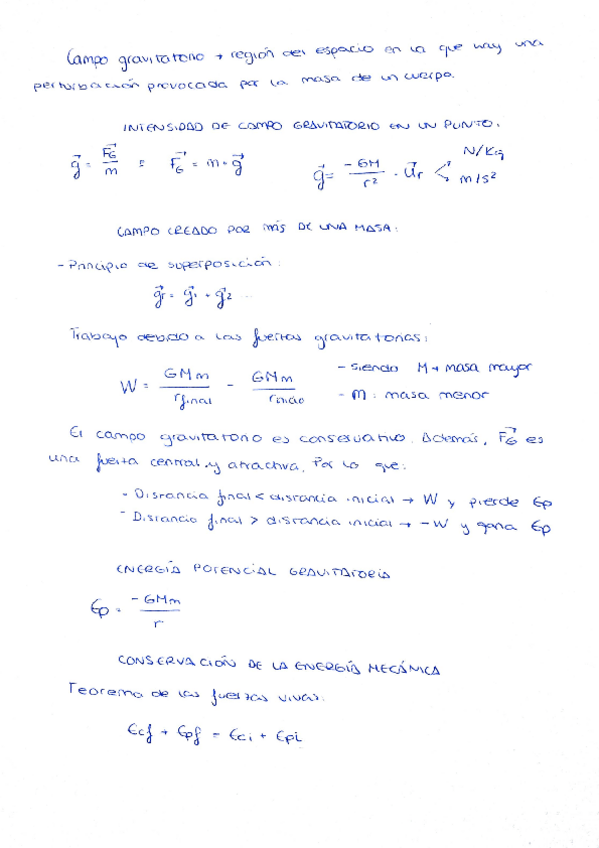 Campo gravitatorio → región del espacio en la que hay una
perturbación provocada por la masa de un cuerpo.
INTENSIDAD DE CAMPO GRAVITATORIO EN UN PUNTO:
g⃗ = F⃗G / m = F⃗G = m · g⃗    g⃗ = -GM / r² · u⃗r < N/Kg m/s²
CAMPO CREADO POR MÁS DE UNA MASA:
- Principio de superposición:
g⃗T = g⃗1 + g⃗2 ...
Trabajo debido a las fuerzas gravitatorias:
W = GMm / rfinal - GMm / rinicio
- siendo M → masa mayor
- m: masa menor
El campo gravitatorio es conservativo. Además, F⃗G es
una fuerza central y atractiva, por lo que:
- Distancia final < distancia inicial → W y pierde Ep
- Distancia final > distancia inicial → -W y gana Ep
ENERGÍA POTENCIAL GRAVITATORIA
Ep = -GMm / r
CONSERVACIÓN DE LA ENERGÍA MECÁNICA
Teorema de las fuerzas vivas:
Ecf + Epf = Eci + Epi